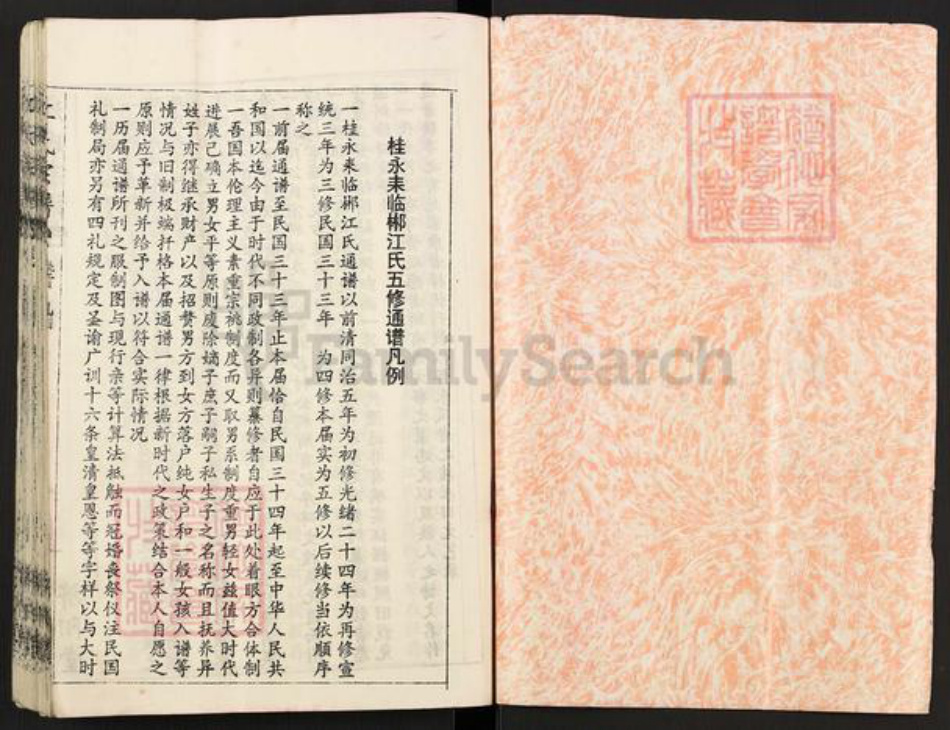 桂永耒临郴江氏五修通谱凡例
一桂永耒临郴江氏通谱以前清同治五年为初修光绪二十四年为再修宣
统三年为三修民国三十三年 为四修本届实为五修以后续修当依顺序
称之
一前届通谱至民国三十三年止本届恰自民国三十四年起至中华人民共
和国以迄今由于时代不同政制各异则纂修者自应于此处着眼方合体制
一吾国本伦理主义素重宗祧制度而又取男系制度重男轻女兹值大时代
进展已确立男女平等原则废除嫡子庶子嗣子私生子之名称而且抚养异
姓子亦得继承财产以及招赘男方到女方落户纯女户和一般女孩入谱等
情况与旧制极端扞格本届通谱一律根据新时代之政策结合本人自愿之
原则应予革新并给予入谱以符合实际情况
一历届通谱所刊之服制图与现行亲等计算法抵触而冠婚丧祭仪注民国
礼制局亦另有四礼规定及圣谕广训十六条皇清皇恩等等字样以与大时
FamilySearch